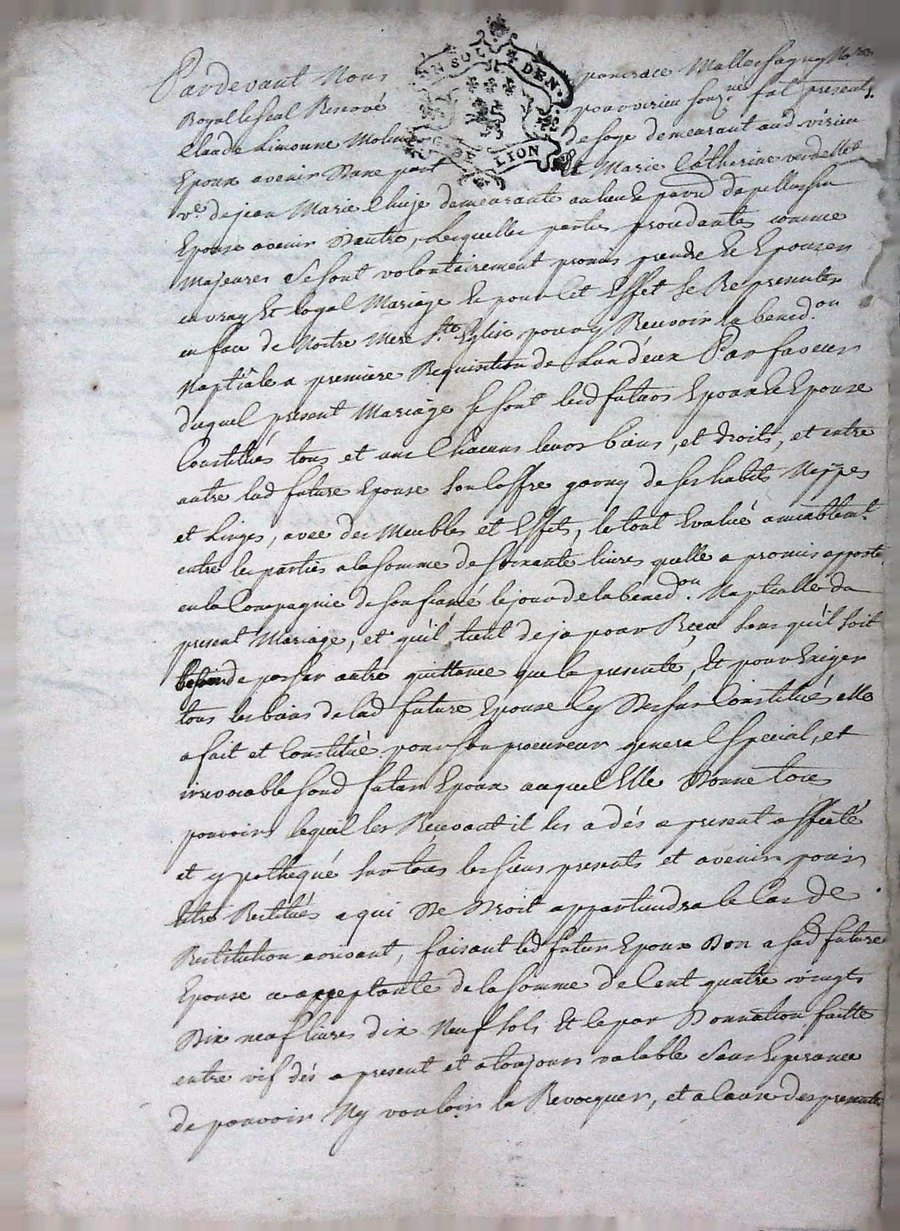 Pardevant Nous pancrace Mallassagny No.re
UN SOL 4 DEN.
G. DE LION
Royal Reservé pour virieu souz.né fut present
Claude Limonne Molinier en soye demeurant aud virieu
Epoux avenir Dune part Et Marie Catherine verdellet
v.e de jean Marie Chuze demeurante au lieu & parr.e de pellussin
Epouse avenir Dautre, Lesquelles parties procedantes comme
Majeures Se sont volontairement promis prendre Et Epouser
en vray Et loyal Mariage Et pour cet Effet se Representer
en face de Notre Mere S.te Eglise pour y Recevoir la bened.on
Naptiâle a premiere Requisition de Lun deux Par faveur
duquel present Mariage se sont lesd futurs Epoux & Epouse
Constitués tous et uns Chacuns leurs biens, et droits, et entre
autre lad future Epouse son coffre garny de ses habits Nippes
et Linges, avec des Meubles et Effets, le tout Evalué amiablem.t
entre les parties a la somme de soixante livres quelle a promis apporter
en la Compagnie de son fiancé le jour de la bened.on Naptialle du
present Mariage, et qu'il tient deja pour Reçu sans qu'il soit
besoin de passer autre quittance que la presente, Et pour Exiger
tous les biens de lad future Epouse Cy Dessus Constitués elle
a fait et Constitué pour son procureur general Special, et
irrevocable sond futur Epoux auquel Elle Donne tous
pouvoirs lequel les Recevant il les a dés a present affecté
et ypothequé sur tous les siens presents et avenir pour
Etre Restitués a qui De Droit appartiendra le Cas de
Restitution arrivant, faisant led futur Epoux Don a sad future
Epouse acceptante de la somme de Cent quatre vingt
Dix neuf livres dix Neuf sols Et ce par Donnation faitte
entre vifs dés a present et a toujours valable Sans Esperance
de pouvoir Ny vouloir la Revocquer, et a cause des presente